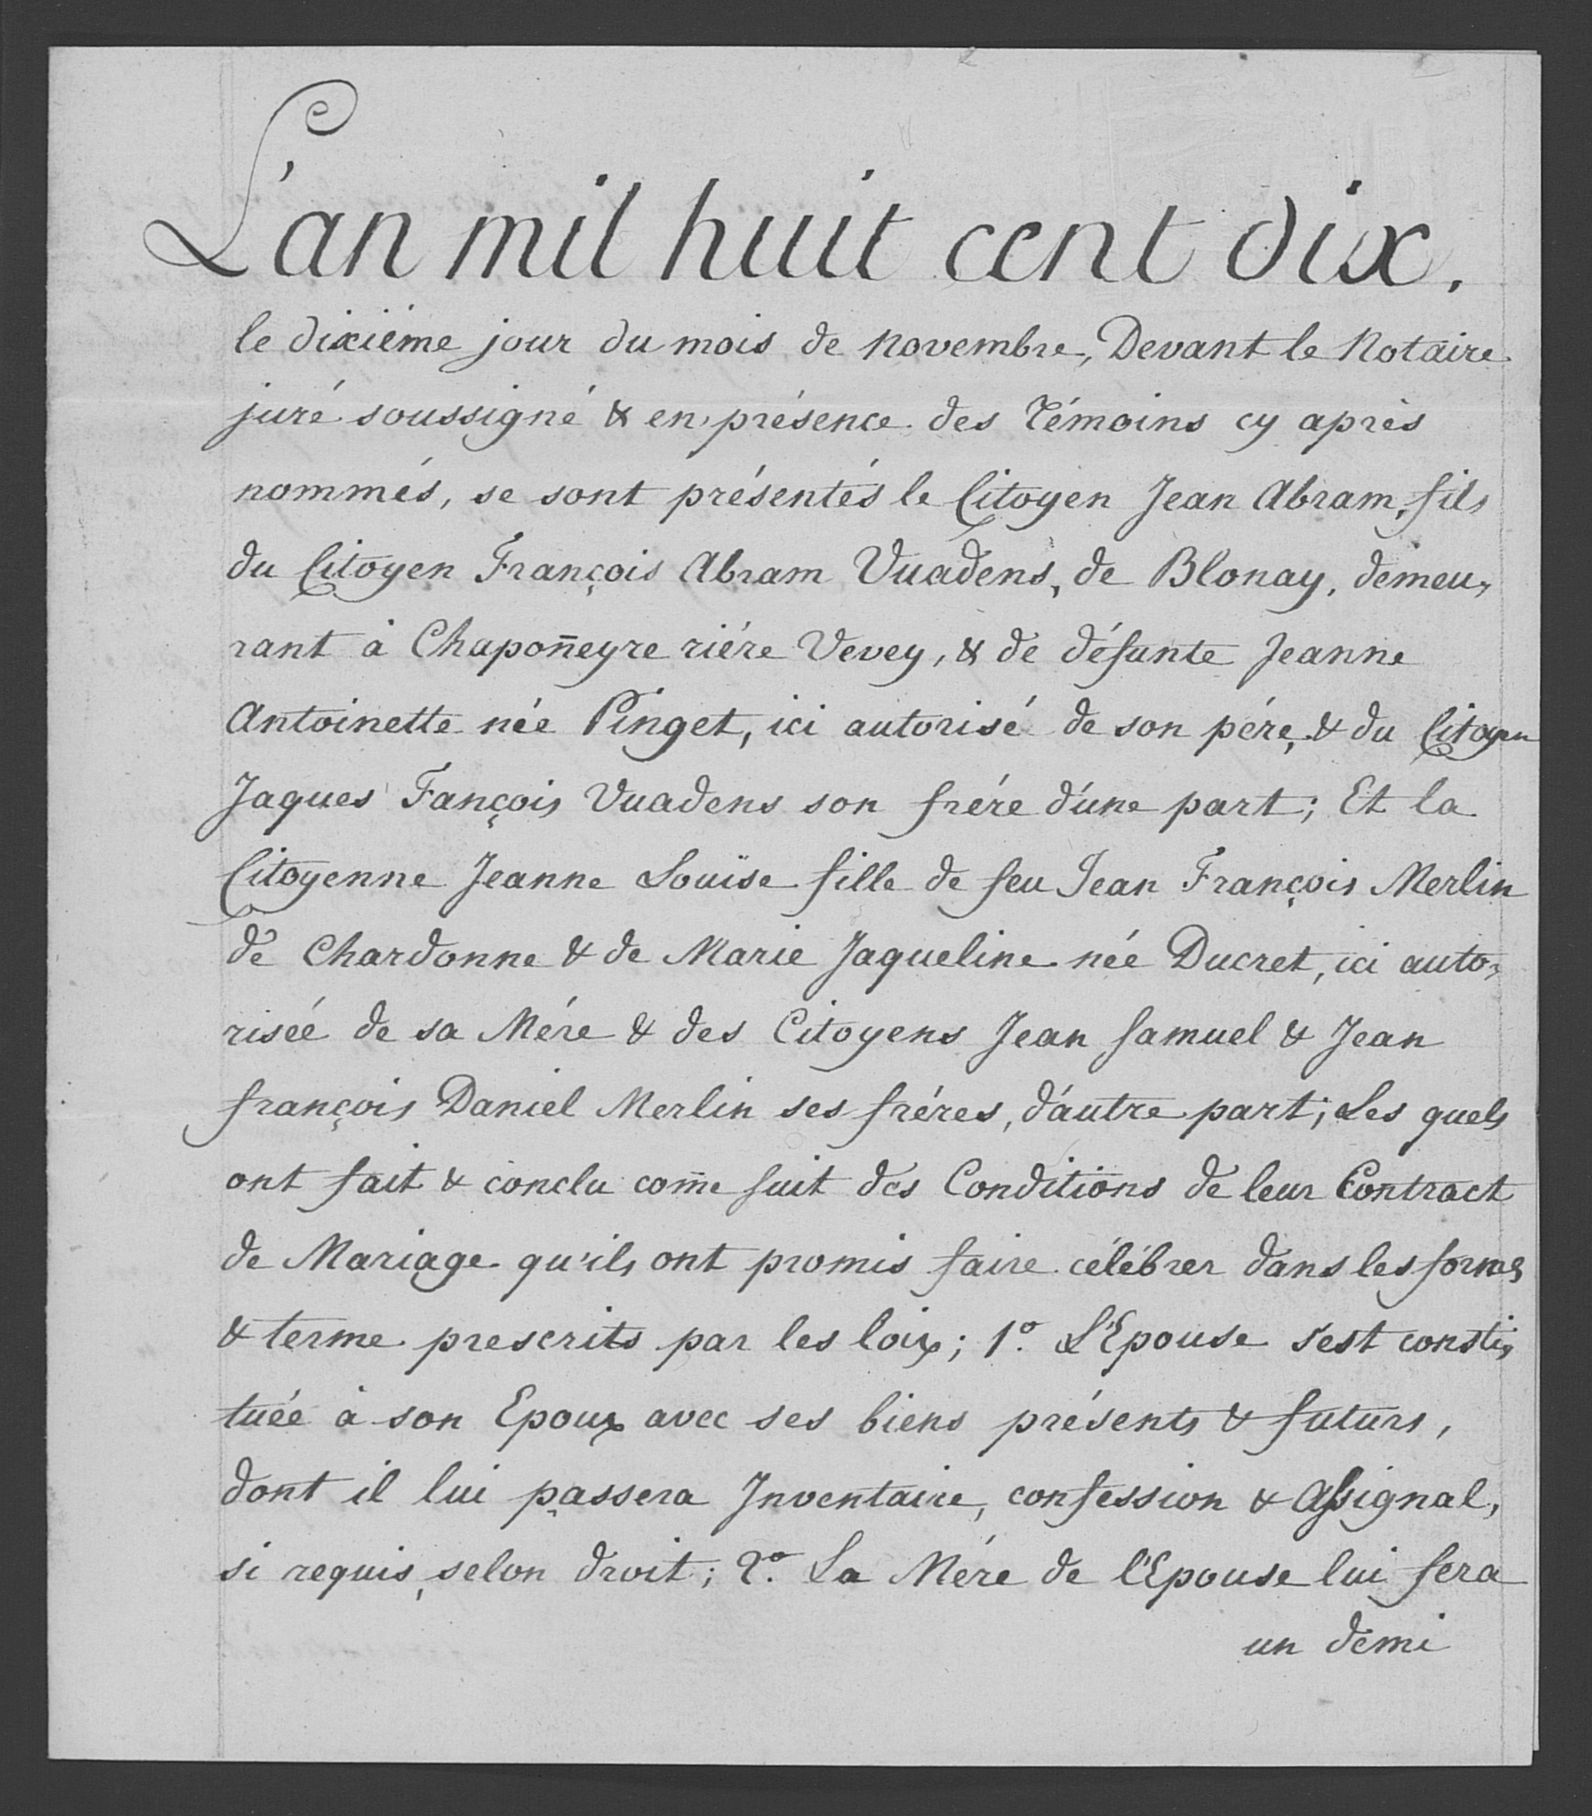 L'an mil huit cent dix.
le dixiéme jour du mois de Novembre, Devant le Notaire
juré soussigné & en présence des Témoins cy aprés
nommés, se sont présentés le Citoyen Jean Abram, fils
du Citoyen François Abram Vuadens, de Blonay, demeu,
rant à Chapoñeyre riére Vevey, & de défunte Jeanne
Antoinette née Pinget, ici autorisé de son pére, & du Citoyen
Jaques Fançois Vuadens son frére d'une part; Et la
Citoyenne Jeanne Louïse fille de feu Jean François Merlin
de Chardonne & de Marie Jaqueline née Ducret, ici auto,
risée de sa Mére & des Citoyens Jean Samuel & Jean
françois Daniel Merlin ses fréres, d'autre part; Les quels
ont fait & conclu com̄e suit des Conditions de leur Contract
de Mariage qu'ils ont promis faire célébrer dans les formes
& terme prescrits par les loix; 1.º L'Epouse s'est consti,
tuée à son Epoux avec ses biens présents & futurs,
dont il lui passera Inventaire, confession & Assignal,
si requis, selon droit; 2.º La Mére de l'Epouse lui fera
un demi